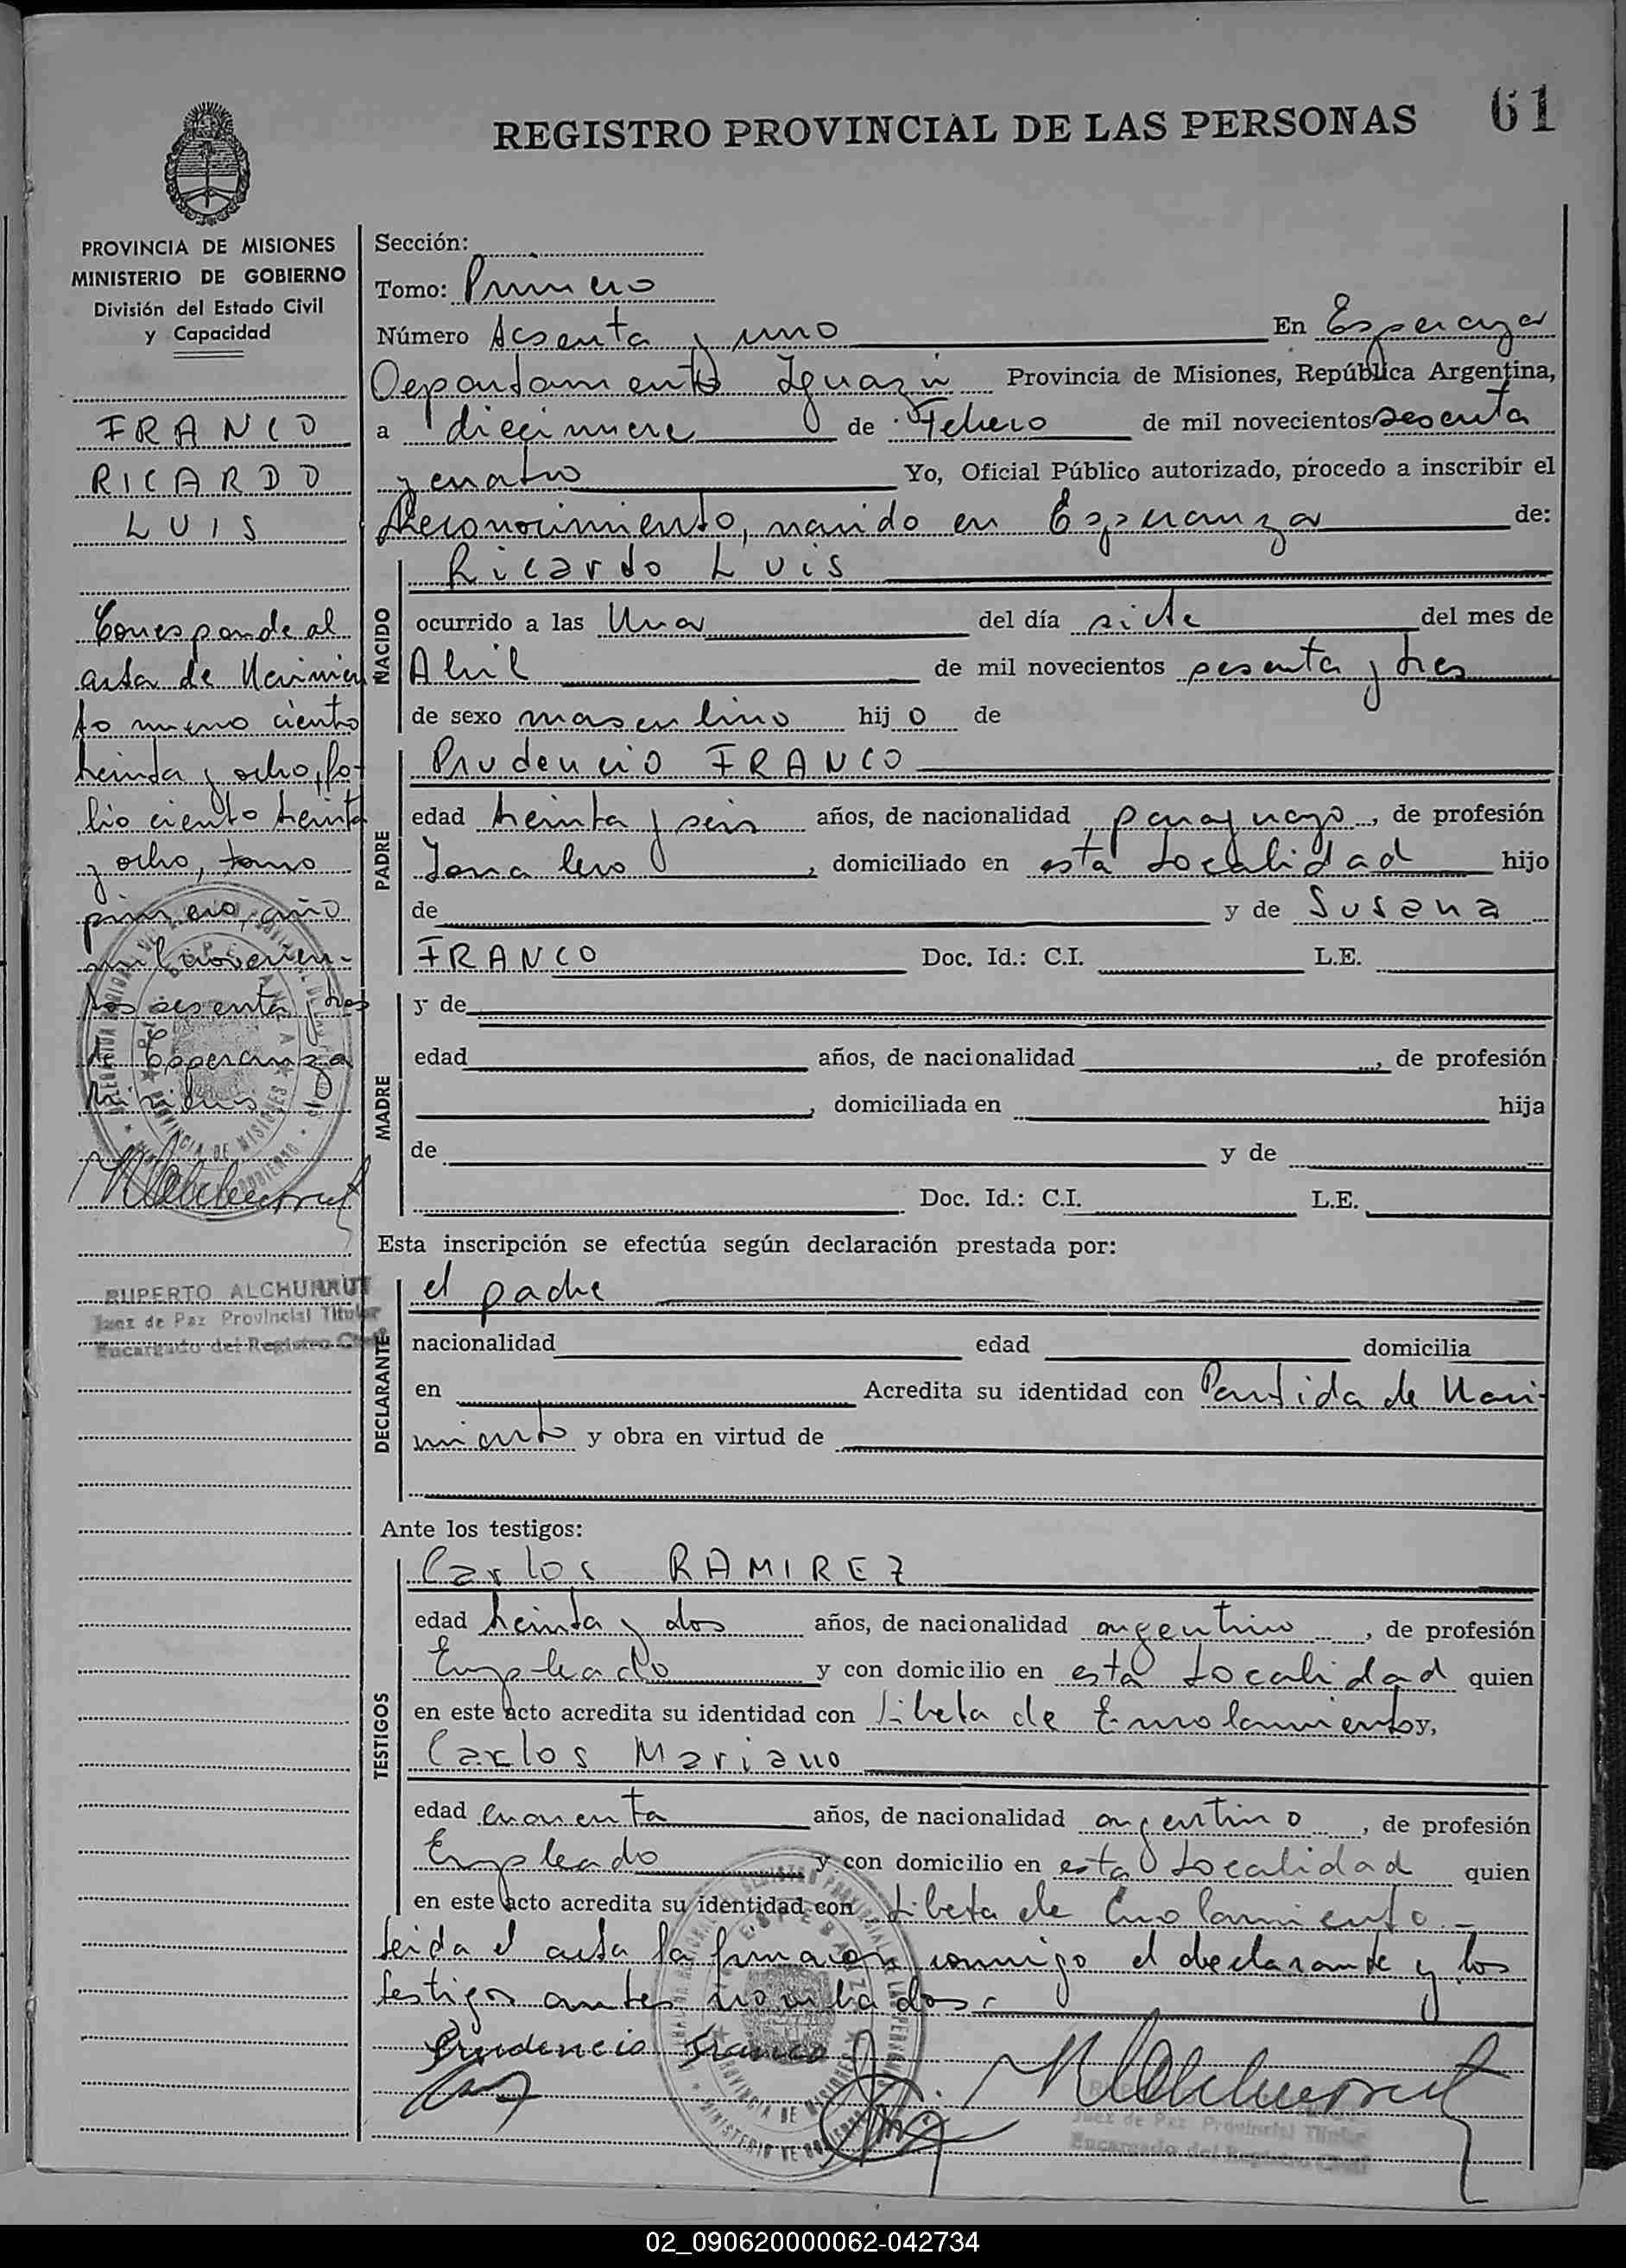 REGISTRO PROVINCIAL DE LAS PERSONAS 61
PROVINCIA DE MISIONES
MINISTERIO DE GOBIERNO
División del Estado Civil
y Capacidad
FRANCO
RICARDO
LUIS
Corresponde al
acta de Nacimien
to numero ciento
treinta y ocho, fo-
lio ciento treinta
y ocho, tomo
primero, año
mil novecien-
tos sesenta y tres
de Esperanza
RUPERTO ALCHURRUT
Juez de Paz Provincial Titular
Encargado del Registro Civil
Sección:
Tomo: Primero
Número sesenta y uno En Esperanza
Departamento Iguazú Provincia de Misiones, República Argentina,
a diecinueve de Febrero de mil novecientos sesenta
y cuatro Yo, Oficial Público autorizado, procedo a inscribir el
Reconocimiento, nacido en Esperanza de:
Ricardo Luis
NACIDO
ocurrido a las Una del día siete del mes de
Abril de mil novecientos sesenta y tres
de sexo masculino hij o de
Prudencio FRANCO
PADRE
edad treinta y seis años, de nacionalidad paraguayo, de profesión
Jornalero, domiciliado en esta Localidad hijo
de y de Susana
FRANCO Doc. Id.: C.I. L.E.
MADRE
y de
edad años, de nacionalidad , de profesión
, domiciliada en hija
de y de
Doc. Id.: C.I. L.E.
Esta inscripción se efectúa según declaración prestada por:
DECLARANTE
el padre
nacionalidad edad domicilia
en Acredita su identidad con Partida de Naci-
miento y obra en virtud de
Ante los testigos:
TESTIGOS
Carlos RAMIREZ
edad treinta y dos años, de nacionalidad argentino, de profesión
Empleado y con domicilio en esta Localidad quien
en este acto acredita su identidad con Libreta de Enrolamiento y,
Carlos Mariano
edad cuarenta años, de nacionalidad argentino, de profesión
Empleado y con domicilio en esta Localidad quien
en este acto acredita su identidad con Libreta de Enrolamiento.-
Leida el acta la firmaron conmigo el declarante y los
testigos antes nombrados.-
Prudencio Franco
Juez de Paz Provincial Titular
Encargado del Registro Civil
02_090620000062-042734